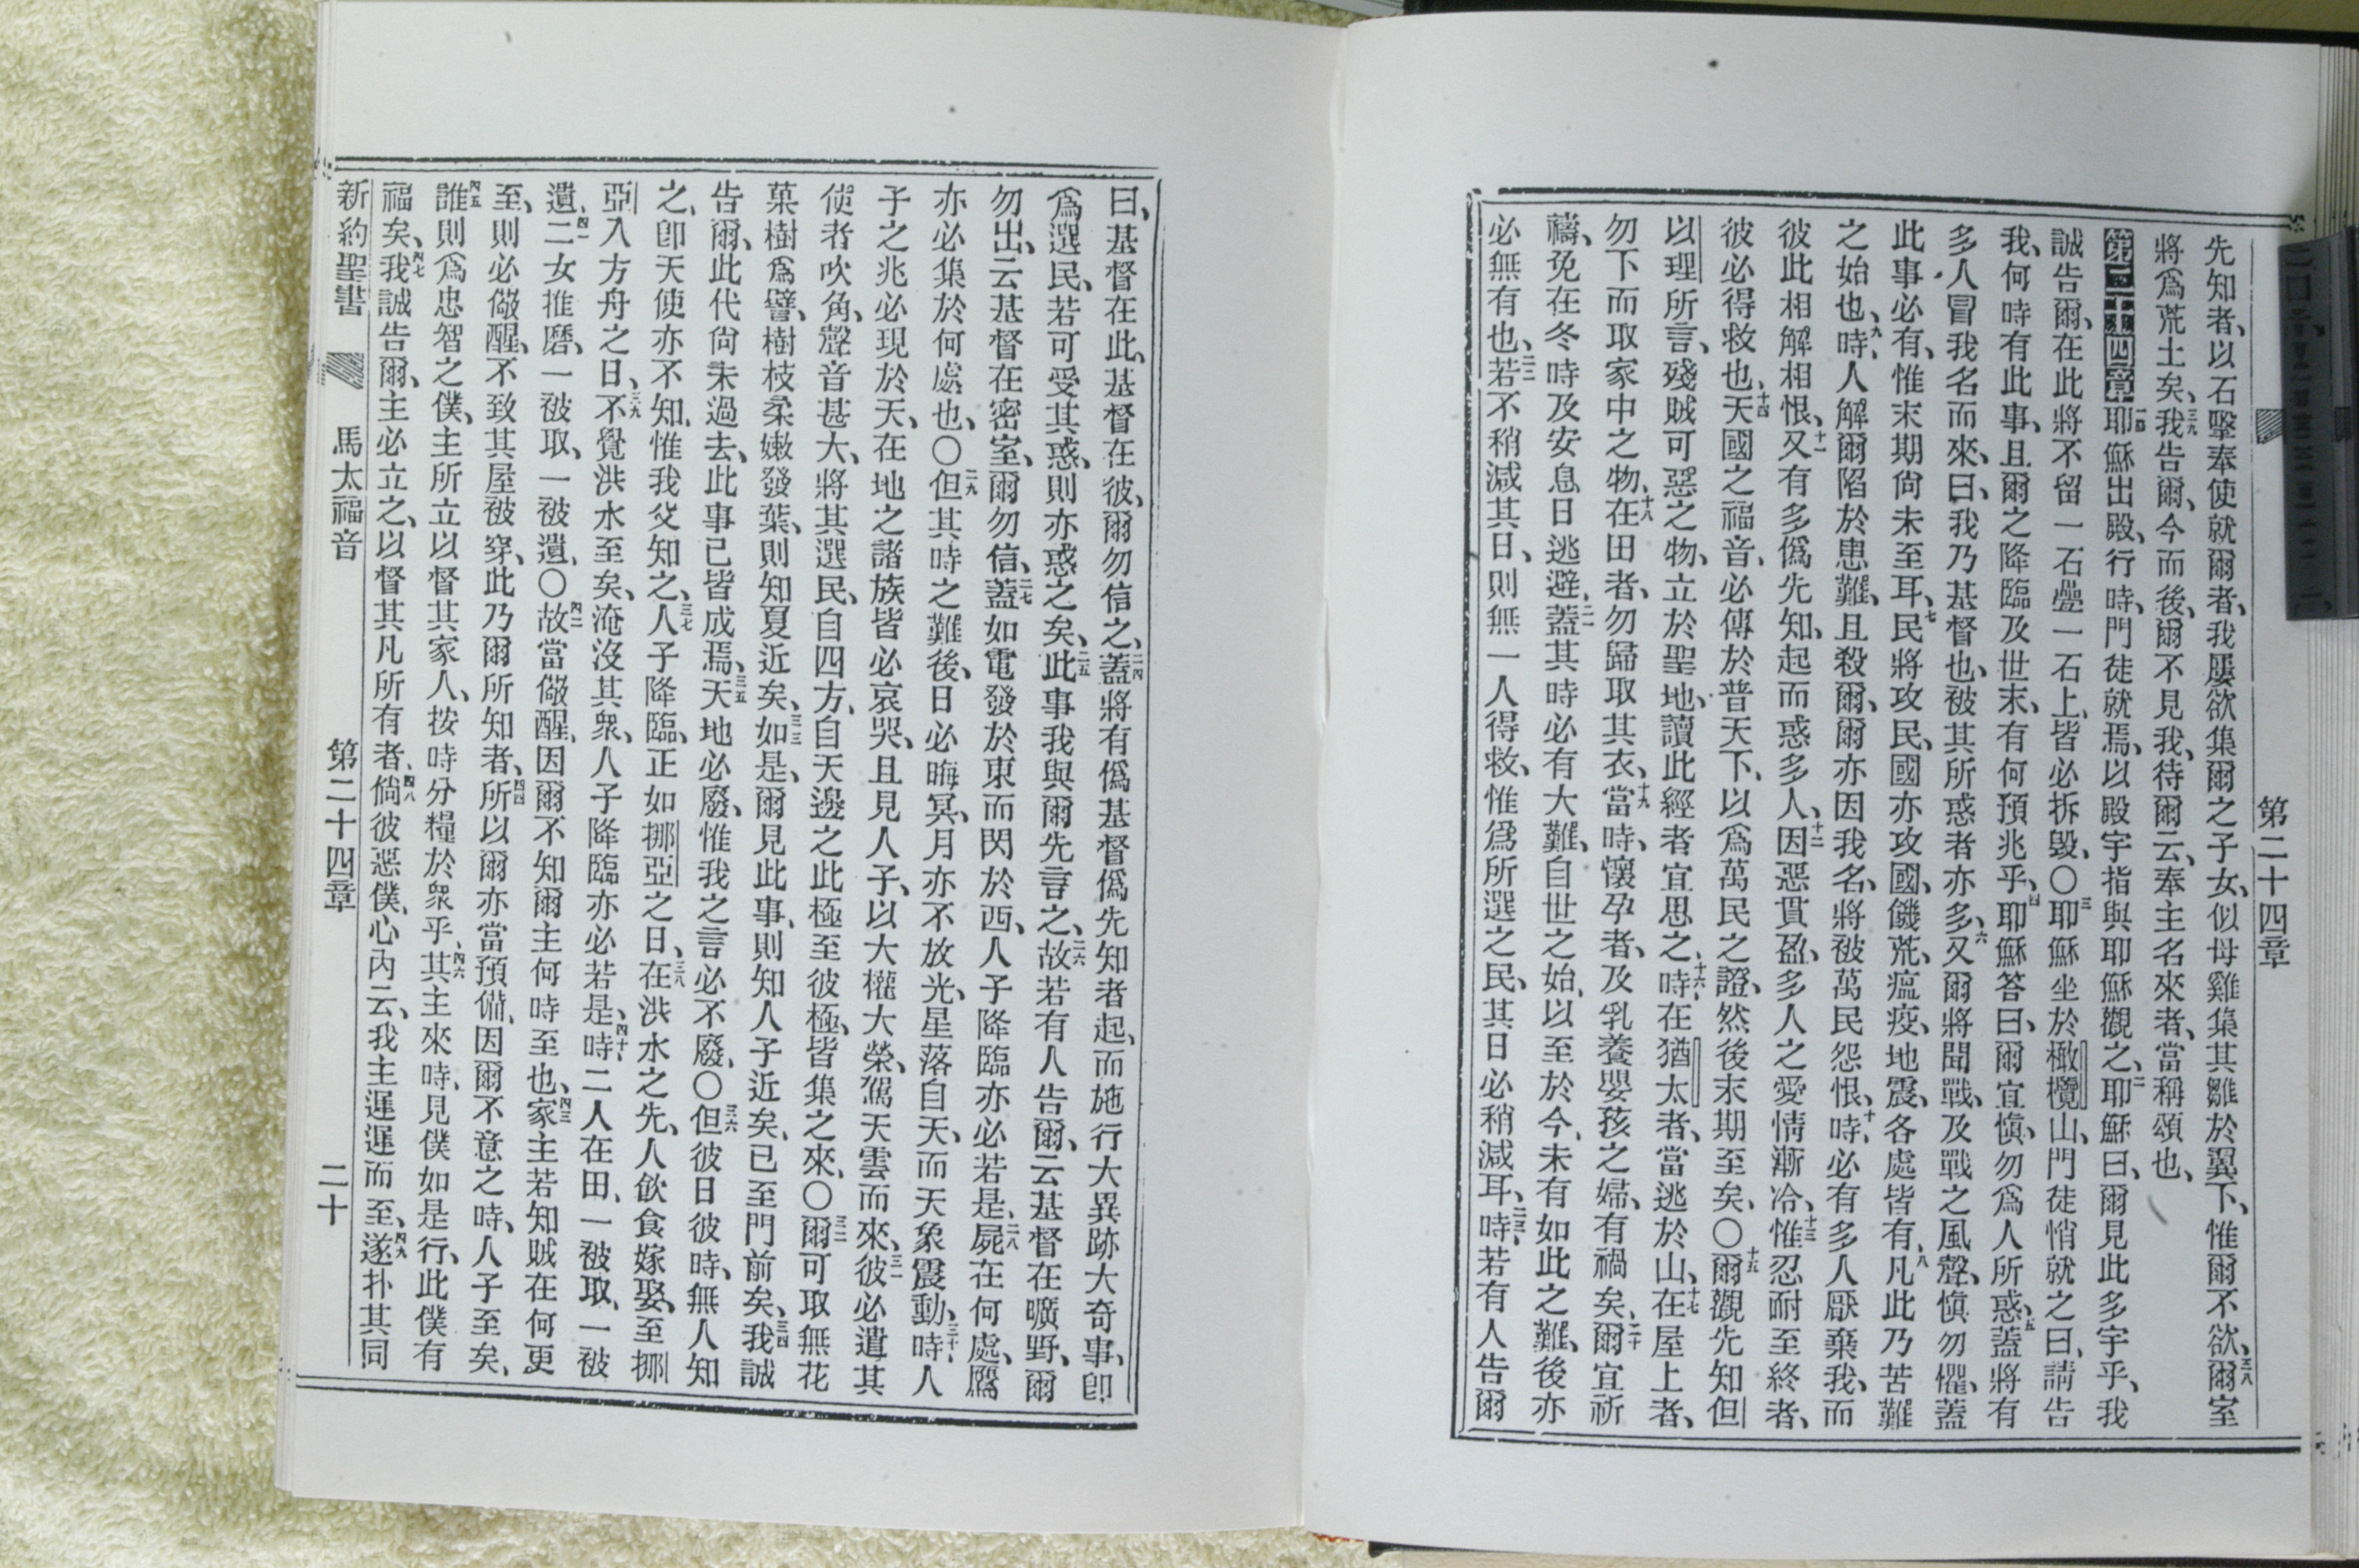 第二十四章
先知者、以石擊奉使就爾者、我屢欲集爾之子女、似母雞集其雛於翼下、惟爾不欲、三八爾室
將爲荒土矣、三九我告爾、今而後、爾不見我、待爾云、奉主名來者、當稱頌也、
第二十四章 一耶穌出殿、行時、門徒就焉、以殿宇指與耶穌觀之、二耶穌曰、爾見此多宇乎、我
誠告爾、在此將不留一石疊一石上、皆必拆毀、〇三耶穌坐於橄欖山、門徒悄就之曰、請告
我、何時有此事、且爾之降臨及世末、有何預兆乎、四耶穌答曰、爾宜愼、勿爲人所惑、五蓋將有
多人冒我名而來、曰、我乃基督也、被其所惑者亦多、六又爾將聞戰、及戰之風聲、愼勿懼、蓋
此事必有、惟末期尙未至耳、七民將攻民、國亦攻國、饑荒、瘟疫、地震、各處皆有、八凡此乃苦難
之始也、九時、人解爾陷於患難、且殺爾、爾亦因我名、將被萬民怨恨、十時、必有多人厭棄我、而
彼此相解相恨、十一又有多僞先知、起而惑多人、十二因惡貫盈、多人之愛情漸冷、十三惟忍耐至終者、
彼必得救也、十四天國之福音、必傳於普天下、以爲萬民之證、然後末期至矣、〇十五爾觀先知但
以理所言、殘賊可惡之物、立於聖地、讀此經者宜思之、十六時、在猶太者、當逃於山、十七在屋上者、
勿下而取家中之物、十八在田者、勿歸取其衣、十九當時、懷孕者、及乳養嬰孩之婦、有禍矣、二十爾宜祈
禱、免在冬時及安息日逃避、二一蓋其時必有大難、自世之始、以至於今、未有如此之難、後亦
必無有也、二二若不稍減其日、則無一人得救、惟爲所選之民、其日必稍減耳、二三時、若有人告爾
曰、基督在此、基督在彼、爾勿信之、二四蓋將有僞基督僞先知者起、而施行大異跡大奇事、卽
爲選民、若可受其惑、則亦惑之矣、二五此事我與爾先言之、二六故若有人告爾、云基督在曠野、爾
勿出、云基督在密室、爾勿信、二七蓋如電發於東而閃於西、人子降臨亦必若是、二八屍在何處、鷹
亦必集於何處也、〇二九但其時之難後、日必晦冥、月亦不放光、星落自天、而天象震動、三十時、人
子之兆必現於天、在地之諸族皆必哀哭、且見人子、以大權大榮、駕天雲而來、三一彼必遣其
使者吹角、聲音甚大、將其選民、自四方、自天邊之此極至彼極、皆集之來、〇三二爾可取無花
菓樹爲譬、樹枝柔嫩發葉、則知夏近矣、三三如是、爾見此事、則知人子近矣、已至門前矣、三四我誠
告爾、此代尙未過去、此事已皆成焉、三五天地必廢、惟我之言必不廢、〇三六但彼日彼時、無人知
之、卽天使亦不知、惟我父知之、三七人子降臨、正如挪亞之日、三八在洪水之先、人飲食嫁娶、至挪
亞入方舟之日、三九不覺洪水至矣、淹沒其衆、人子降臨亦必若是、四十時、二人在田、一被取、一被
遺、四一二女推磨、一被取、一被遺、〇四二故當儆醒、因爾不知爾主何時至也、四三家主若知賊在何更
至、則必儆醒、不致其屋被穿、此乃爾所知者、四四所以爾亦當預備、因爾不意之時、人子至矣、
四五誰則爲忠智之僕、主所立以督其家人、按時分糧於衆乎、四六其主來時、見僕如是行、此僕有
福矣、四七我誠告爾、主必立之、以督其凡所有者、四八倘彼惡僕、心內云、我主遲遲而至、四九遂扑其同
新約聖書 馬太福音 第二十四章 二十